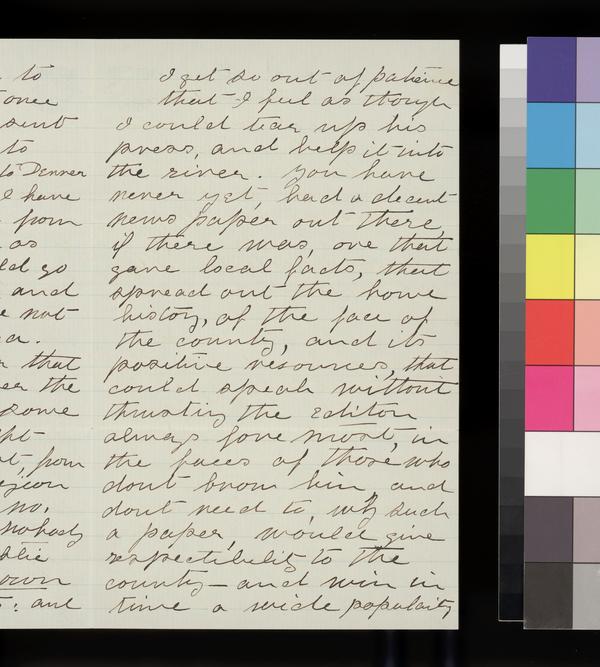 to
once
sent
to
to Denver
I have
from
as
ld go
and
e not
a.
that
the
some
pt
t, from
egion
no,
nobody
blic
own
: and
I get so out of patience
that I feel as though
I could tear up his
press, and help it into
the river. you have
never yet, had a decent
news paper out there,
if there was, one that
gave local facts, that
spread out the home
history, of the face of
the county, and its
positive resources, that
could speak without
thrusting the editor
always fore most, in
the faces of those who
dont know him and
dont need to, why such
a paper, would give
respectibility to the
county - and win in
time a wide populaity